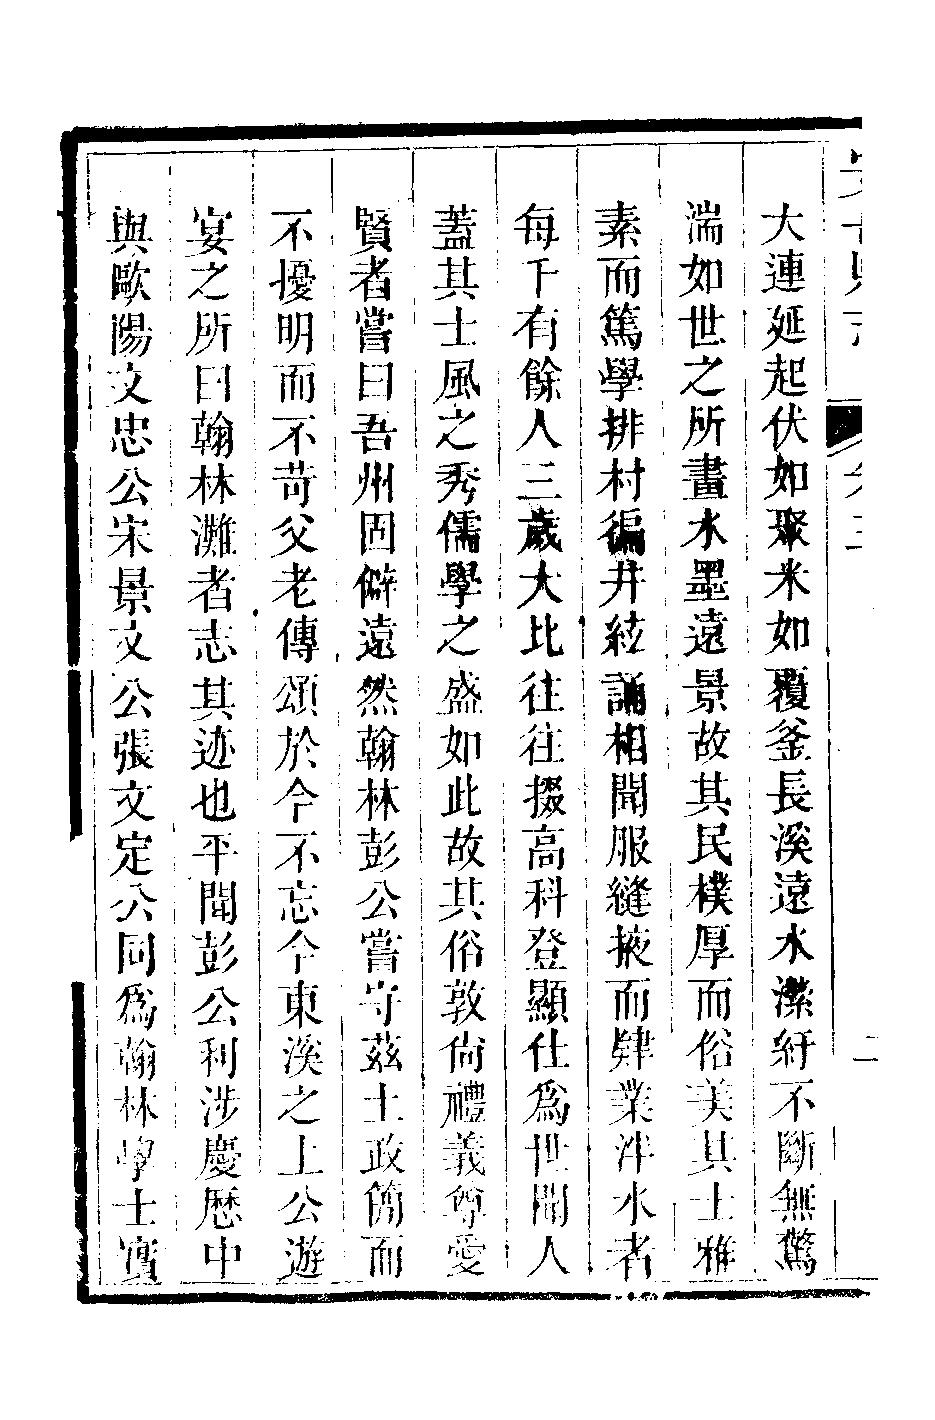 大連延起伏如聚米如覆釜長溪遠水瀠紆不斷無驚
湍如世之所畫水墨遠景故其民樸厚而俗美其士雅
素而篤學排村徧井絃誦相聞服縫掖而肄業泮水者
每千有餘人三歲大比往往掇高科登顯仕為世聞人
蓋其士風之秀儒學之盛如此故其俗敦尙禮義尊愛
賢者嘗曰吾州固僻遠然翰林彭公嘗守茲土政簡而
不擾明而不苛父老傳頌於今不忘今東溪之上公遊
宴之所曰翰林灘者志其迹也平聞彭公利涉慶歷中
與歐陽文忠公宋景文公張文定公同為翰林學士實